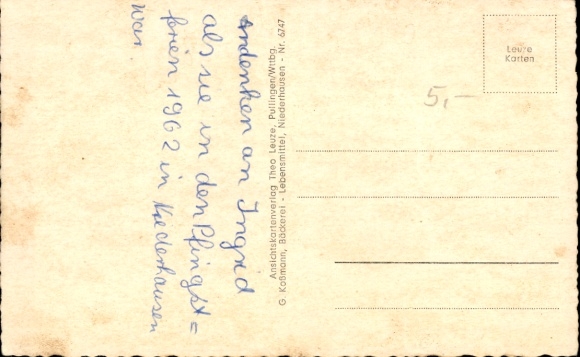 Andenken an Ingrid
als sie in den Pfingst=
ferien 1962 in Niederhausen
war.
Ansichtskartenverlag Theo Leuze, Pullingen/Wttbg.
G. Koßmann, Bäckerei - Lebensmittel, Niederhausen - Nr. 6747
Leuze
Karten
5,-